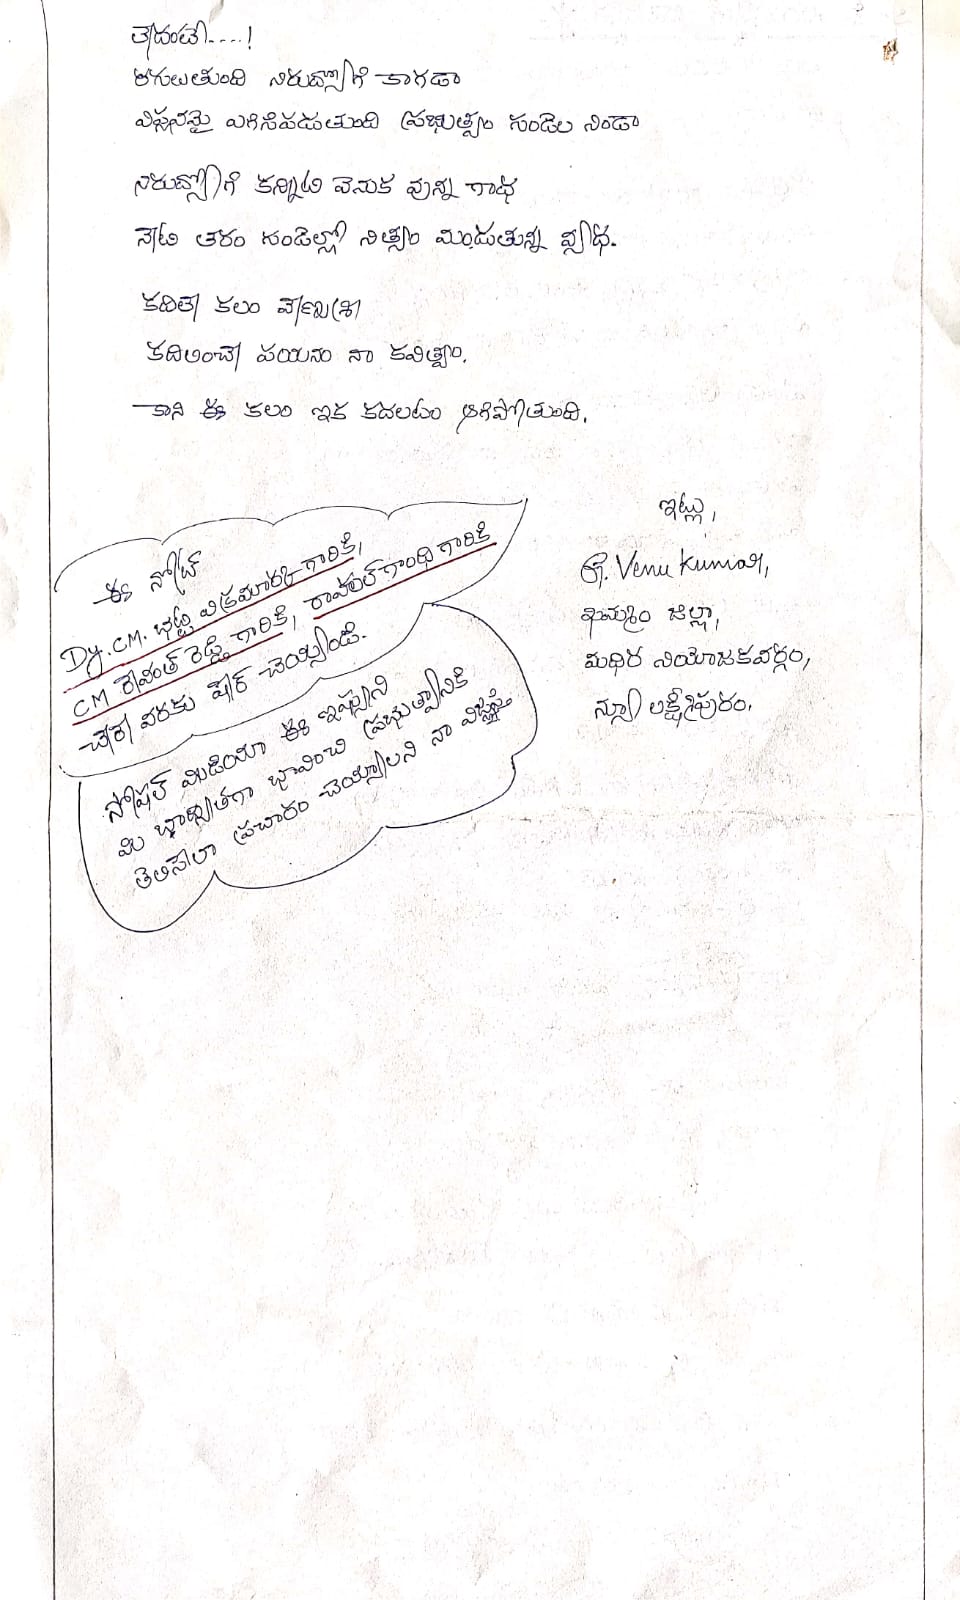 లేదంటే....!
రగులుతుంది నిరుద్యోగి కాగడా
విప్లవమై ఎగిసిపడుతుంది ప్రభుత్వం గుండెల నిండా
నిరుద్యోగి కన్నీటి వెనుక వున్న గాథ
నేటి తరం గుండెల్లో నిత్యం మిండుతున్న వ్యాధ.
కదితే కలం
కదిలించే పయనం నా కవిత్వం.
కాని ఈ కలం ఇక కదలటం ఆగిపోతుంది.
ఇట్లు,
G. Venu Kumar,
ఖమ్మం జిల్లా,
మధిర నియోజకవర్గం,
న్యూ లక్ష్మీపురం.
ఈ నోట్
Dy. CM. భట్టి విక్రమార్క గారికి,
CM రేవంత్ రెడ్డి గారికి, రాహుల్ గాంధి గారికి
చేరే వరకు షేర్ చెయ్యండి.
సోషల్ మిడియా ఈ ఇష్యుని
మి బ్యాధ్యతగా భావించి ప్రభుత్వానికి
తెలిసేలా ప్రచారం చెయ్యాలని నా విజ్ఞప్తి